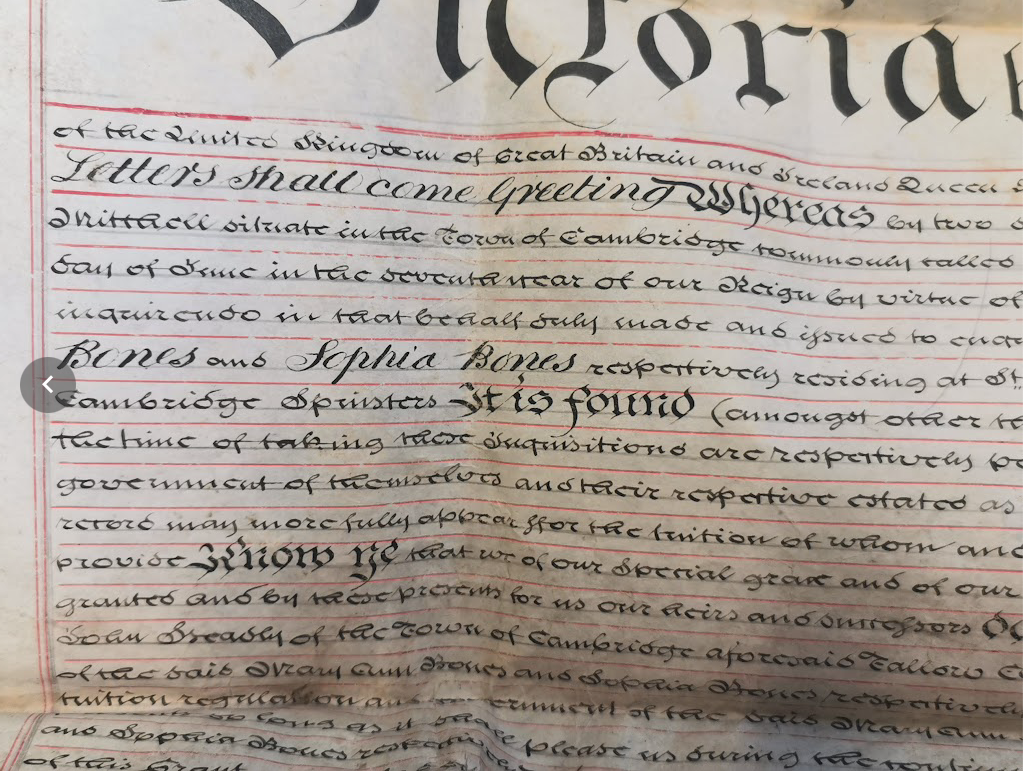 Victoria
of the United Kingdom of Great Britain and Ireland Queen
Letters shall come Greeting Whereas by two
situate in the Town of Cambridge commonly called
day of June in the seventh year of our Reign by virtue of
inquirendo in that behalf duly made and issued to
Bones and Sophia Bones respectively residing at St
Cambridge Spinsters It is found (amongst other
the time of taking these Inquisitions are respectively
government of themselves and their respective estates as
record may more fully appear ffor the tuition of whom and
provide Know Ye that we of our Special grace and of our
granted and by these presents for us our heirs and successors
John of the Town of Cambridge aforesaid Tallow
of the said Mary Ann Bones and Sophia Bones respectively
tuition regulation and government of the said Mary Ann
so long as it shall please us during the
and Sophia Bones respectively
of this Grant